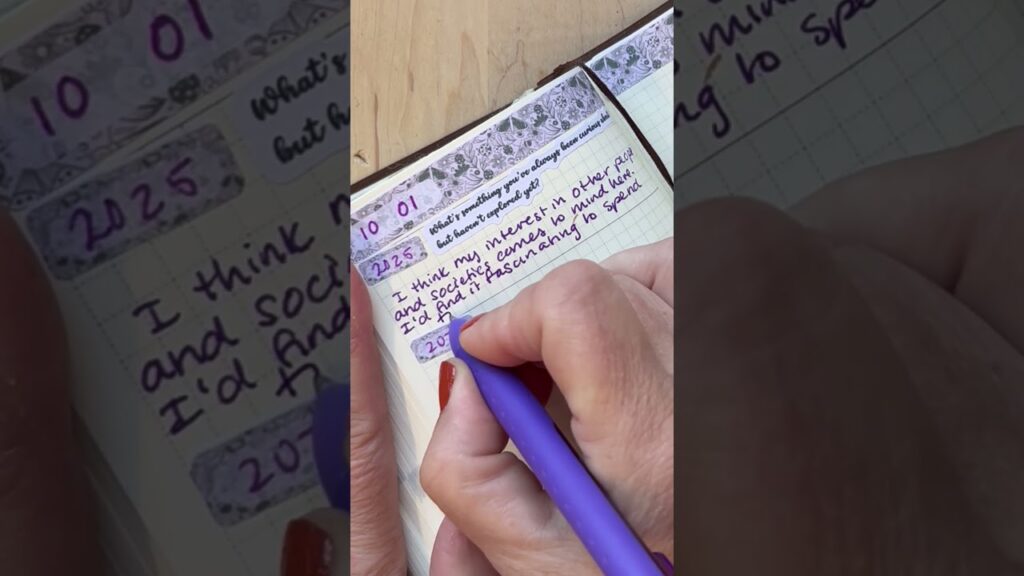 10 01
What's something you've always been curious
but haven't explored yet?
2025
I think my interest in other
and societies comes to mind here.
I'd find it fascinating to spend
202